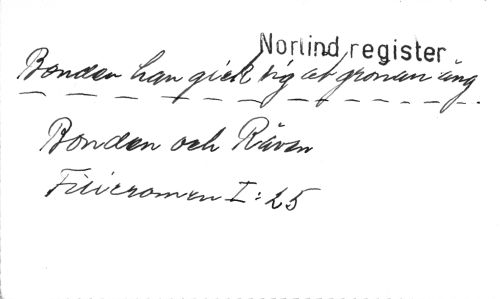 Norlind register
Bonden han gick sig åt gronan äng.
Bonden och Räven
I:25